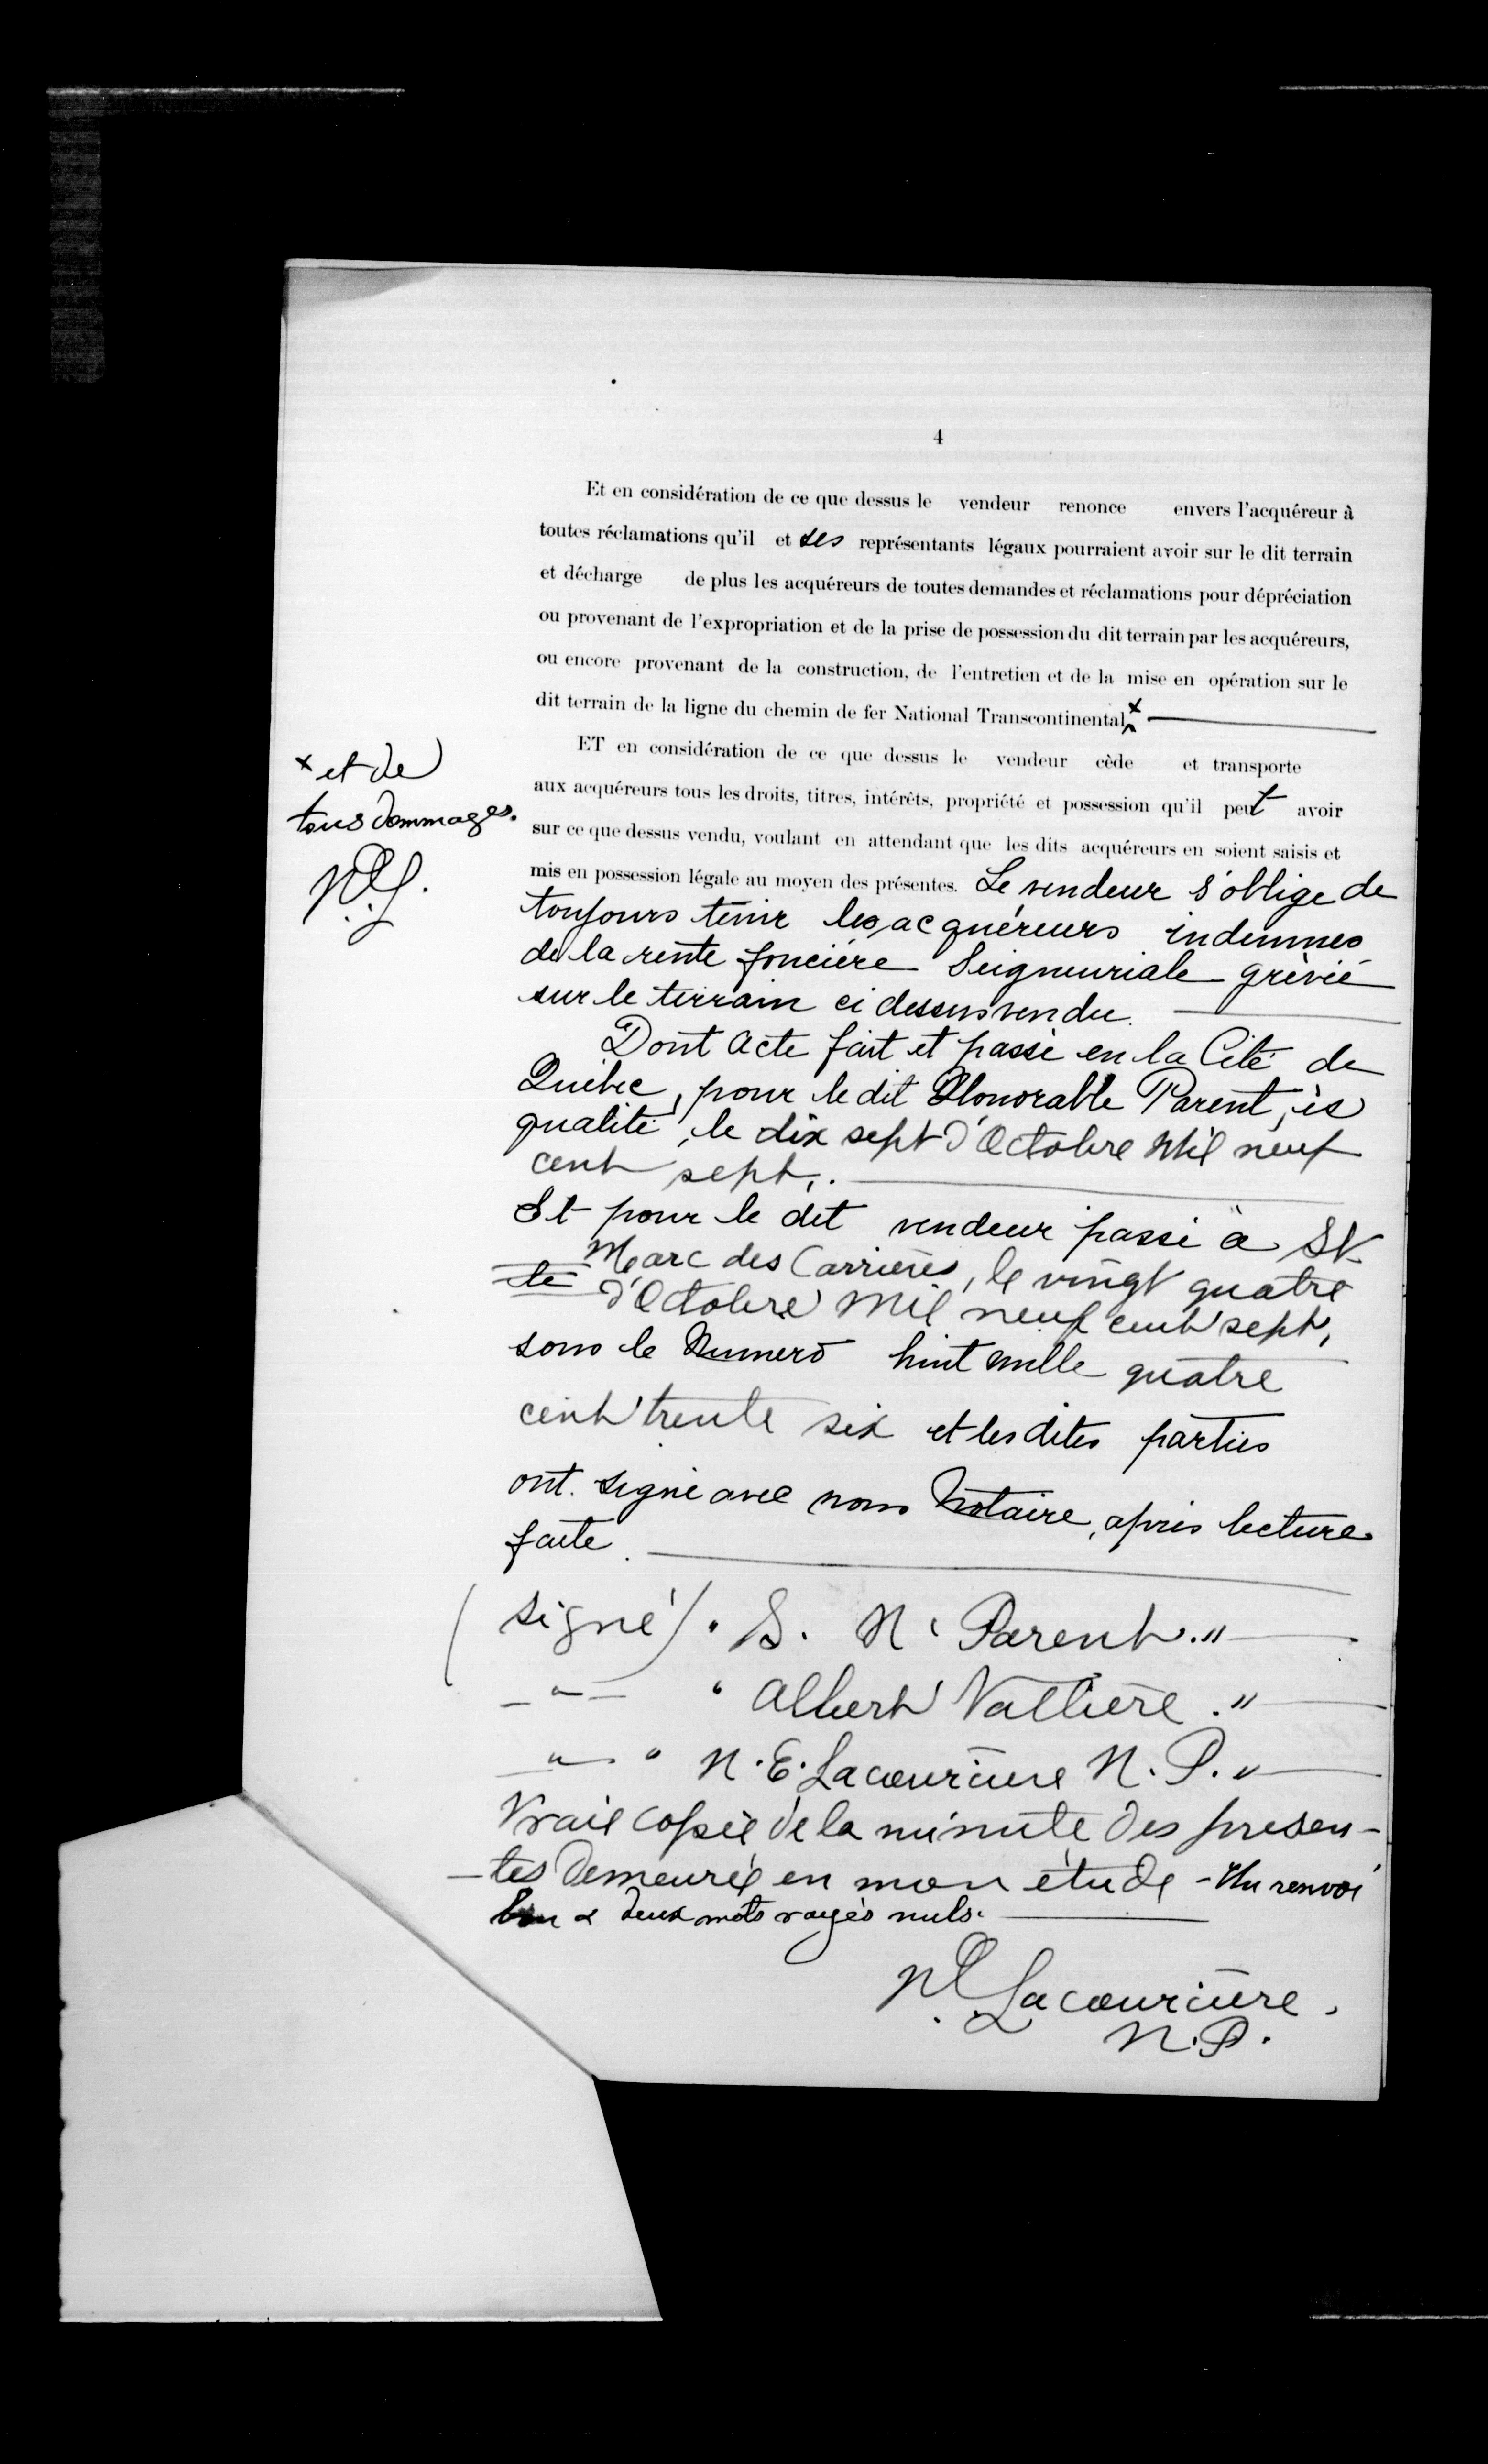 4
Et en considération de ce que dessus le vendeur renonce envers l'acquéreur à
toutes réclamations qu'il et ses représentants légaux pourraient avoir sur le dit terrain
et décharge de plus les acquéreurs de toutes demandes et réclamations pour dépréciation
ou provenant de l'expropriation et de la prise de possession du dit terrain par les acquéreurs,
ou encore provenant de la construction, de l'entretien et de la mise en opération sur le
dit terrain de la ligne du chemin de fer National Transcontinental x
x et de
tous dommages.
ET en considération de ce que dessus le vendeur cède et transporte
aux acquéreurs tous les droits, titres, intérêts, propriété et possession qu'il peut avoir
sur ce que dessus vendu, voulant en attendant que les dits acquéreurs en soient saisis et
mis en possession légale au moyen des présentes. Le vendeur s'oblige de
toujours tenir les acquéreurs indemnes
de la rente foncière Seigneuriale grèvée
sur le terrain ci dessus vendu.
Dont Acte fait et passé en la Cité de
Québec, pour le dit Honorable Parent, ès
qualité, le dix sept d'Octobre Mil neuf
cent sept.
Et pour le dit vendeur passé à St
Marc des Carrières, le vingt quatre
le d'Octobre Mil neuf cent sept,
sous le Numero huit mille quatre
cent trente six et les dites parties
ont signé avec nous Notaire, après lecture
faite.
(signé) " S. N. Parent "
" " Albert Vallière. "
" " N. E. Lacoursière N. P. "
Vraie copie de la minute des présen-
-tes demeurée en mon étude - Un renvoi
bon & deux mots rayés nuls.
N E Lacoursière.
N. P.